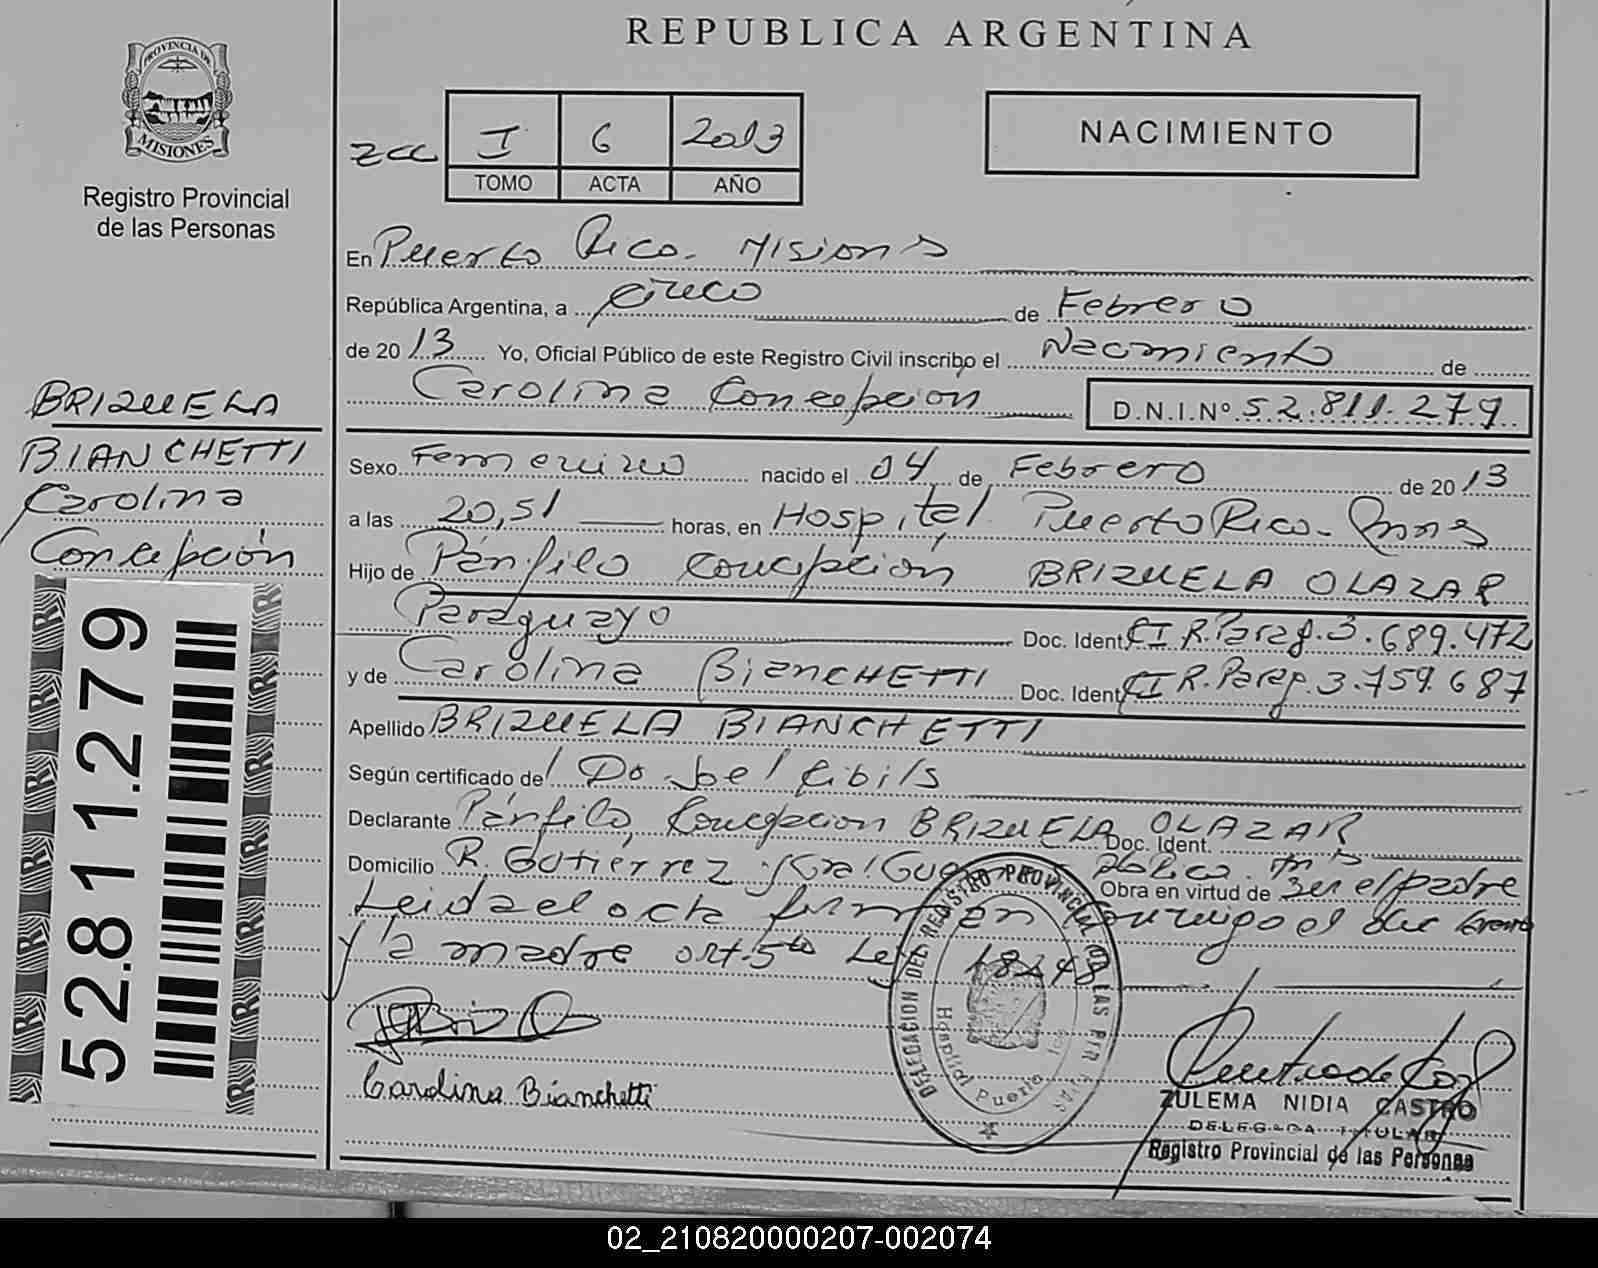 REPUBLICA ARGENTINA
PROVINCIA DE
MISIONES
Registro Provincial
de las Personas
NACIMIENTO
I 6 2013
TOMO ACTA AÑO
En Puerto Rico. Misiones
República Argentina, a cinco de Febrero
de 2013 Yo, Oficial Público de este Registro Civil inscribo el Nacimiento de
Carolina Concepción D.N.I.Nº 52.811.279
BRIZUELA
BIANCHETTI
Carolina
Concepción
52.811.279
Sexo Femenino nacido el 04 de Febrero de 2013
a las 20,51 horas, en Hospital Puerto Rico-
Hijo de Pánfilo Concepción BRIZUELA OLAZAR
Paraguayo Doc. Ident. CI R. Parag. 3.689.472
y de Carolina BianCHETTI Doc. Ident. CI R. Parag. 3.759.687
Apellido BRIZUELA BIANCHETTI
Según certificado de Joel
Declarante Pánfilo Concepción BRIZUELA OLAZAR Doc. Ident.
Domicilio R. Gutierrez Obra en virtud de ser el padre
Leida el acta firman conmigo el
y la madre art. 5to Ley 18248
Carolina Bianchetti
DELEGACION DEL REGISTRO PROVINCIAL DE LAS PER
Hospital Puerto
ZULEMA NIDIA CASTRO
DELEGADA TITULAR
Registro Provincial de las Personas
02_210820000207-002074